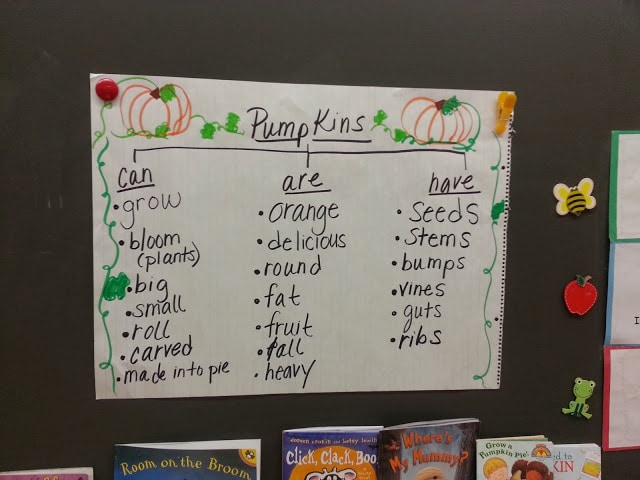 PumpKins
can
• grow
• bloom
(plants)
• big
• small
• roll
• carved
• made into pie
are
• orange
• delicious
• round
• fat
• fruit
• fall
• heavy
have
• Seeds
• Stems
• bumps
• vines
• guts
• ribs
I
Room on the Broom
doreen cronin and betsy lewin
CLICK, CLACK, BOO
Where's
My Mummy?
Grow a
Pumpkin Pie!